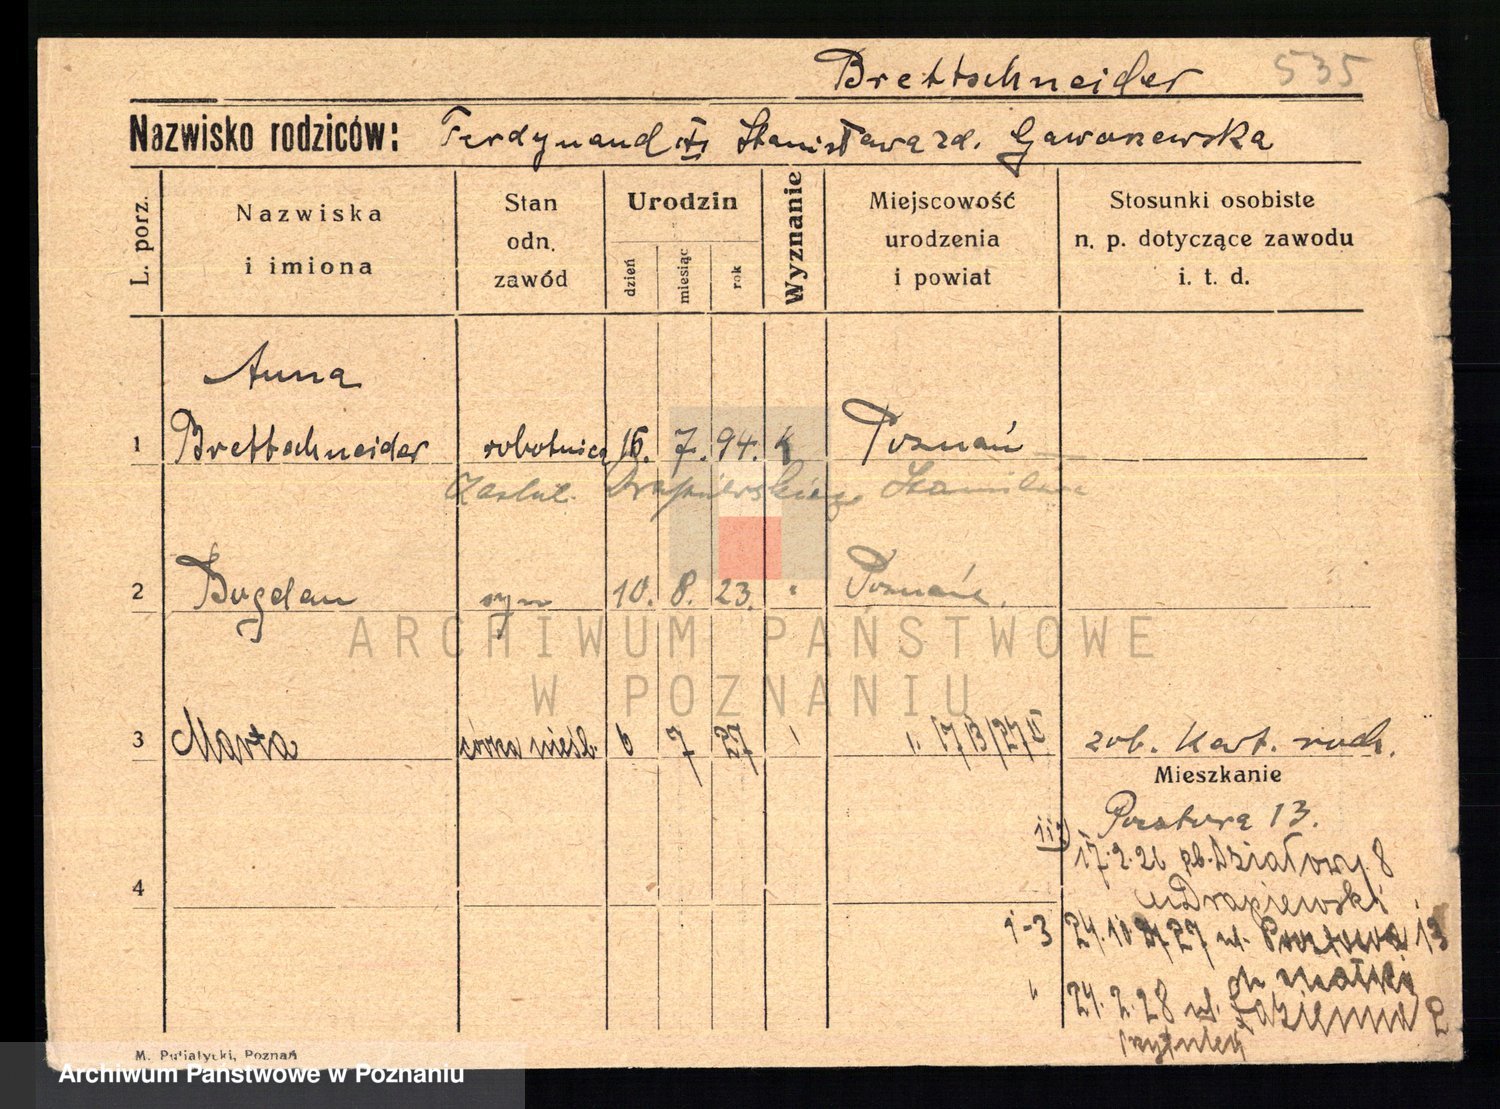 Brettschneider 535
Nazwisko rodziców: Ferdynand Stanisława zd. Gawronewska
L. porz.
Nazwiska
i imiona
Stan
odn.
zawód
Urodzin
dzień
miesiąc
rok
Wyznanie
Miejscowość
urodzenia
i powiat
Stosunki osobiste
n. p. dotyczące zawodu
i. t. d.
Anna
1 Brettschneider robotnica 16. 7. 94. k Poznań
Zaślub. Drapiewskiego Stanisława
2 Bogdan syn 10. 8. 23. " Poznań.
3 Marta córka nieśl. 6 7 27 17/13/27 II zob. Kart. rodz.
Mieszkanie
Pocztowa 13.
17.2.26 pb. Działowy 8
4
u Drapiewski
1-3 24.10 27 ul. Pocztowa 13
do matki
" 24.2.28 ul. Łazienna 2
przytułek
M. Putiatycki, Poznań
ARCHIWUM PAŃSTWOWE
W POZNANIU
Archiwum Państwowe w Poznaniu